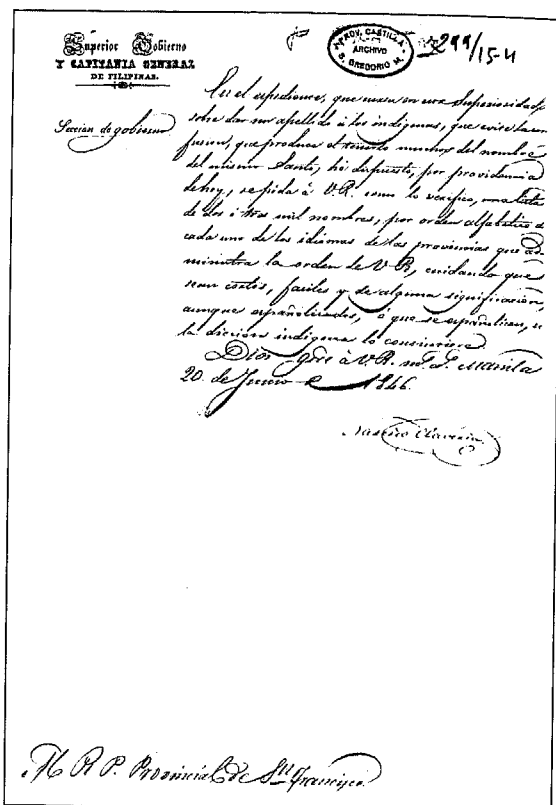 Superior Gobierno
Y CAPITANIA GENERAL
DE FILIPINAS.
Seccion de gobierno
PROV. CASTILLA
ARCHIVO
S. GREGORIO M.
299/15-4
En el espediente, que versa en esta Superioridad
sobre dar un apellido á los indígenas, que evite la con
fusion, que produce el tenerlo muchos del nombre
del mismo Santo, hé dispuesto, por providencia
de hoy, se pida á V.R. como lo verifico, una lista
de dos i tres mil nombres, por orden alfabetico de
cada uno de los idiomas de las provincias que ad
ministra la orden de V.R., cuidando que
sean cortos, faciles y de alguna significacion,
aunque españolizados, ó que se españolicen, si
la diccion indigena lo consintiere.
Dios gde á V.R. ms. as. Manila
20 de Junio de 1846.
Narciso Claveria
M. R. P. Provincial de Sn Francisco.